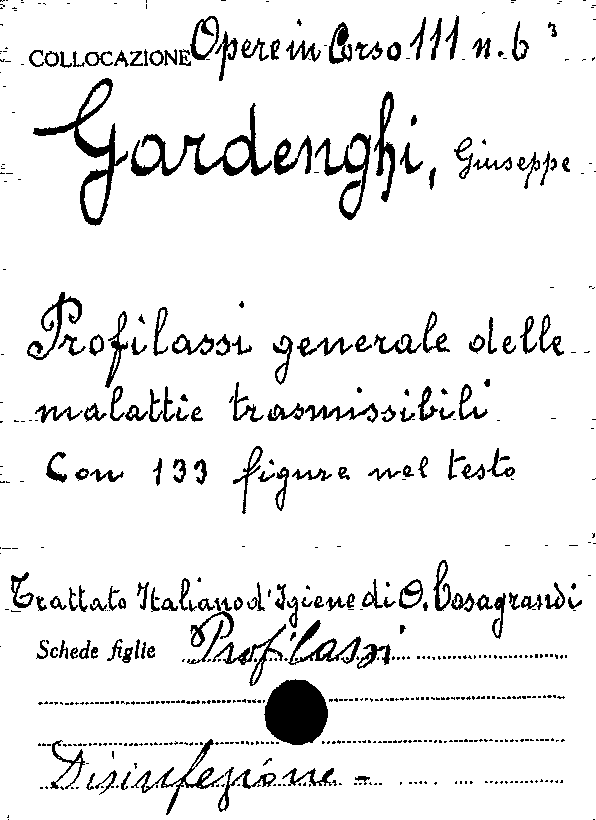 COLLOCAZIONE Opere in Corso 111 n. 6 ³
Gardenghi, Giuseppe
Profilassi generale delle
malattie trasmissibili
Con 133 figure nel testo
Trattato Italiano d'Igiene di O. Casagrandi
Schede figlie Profilassi
Disinfezione -